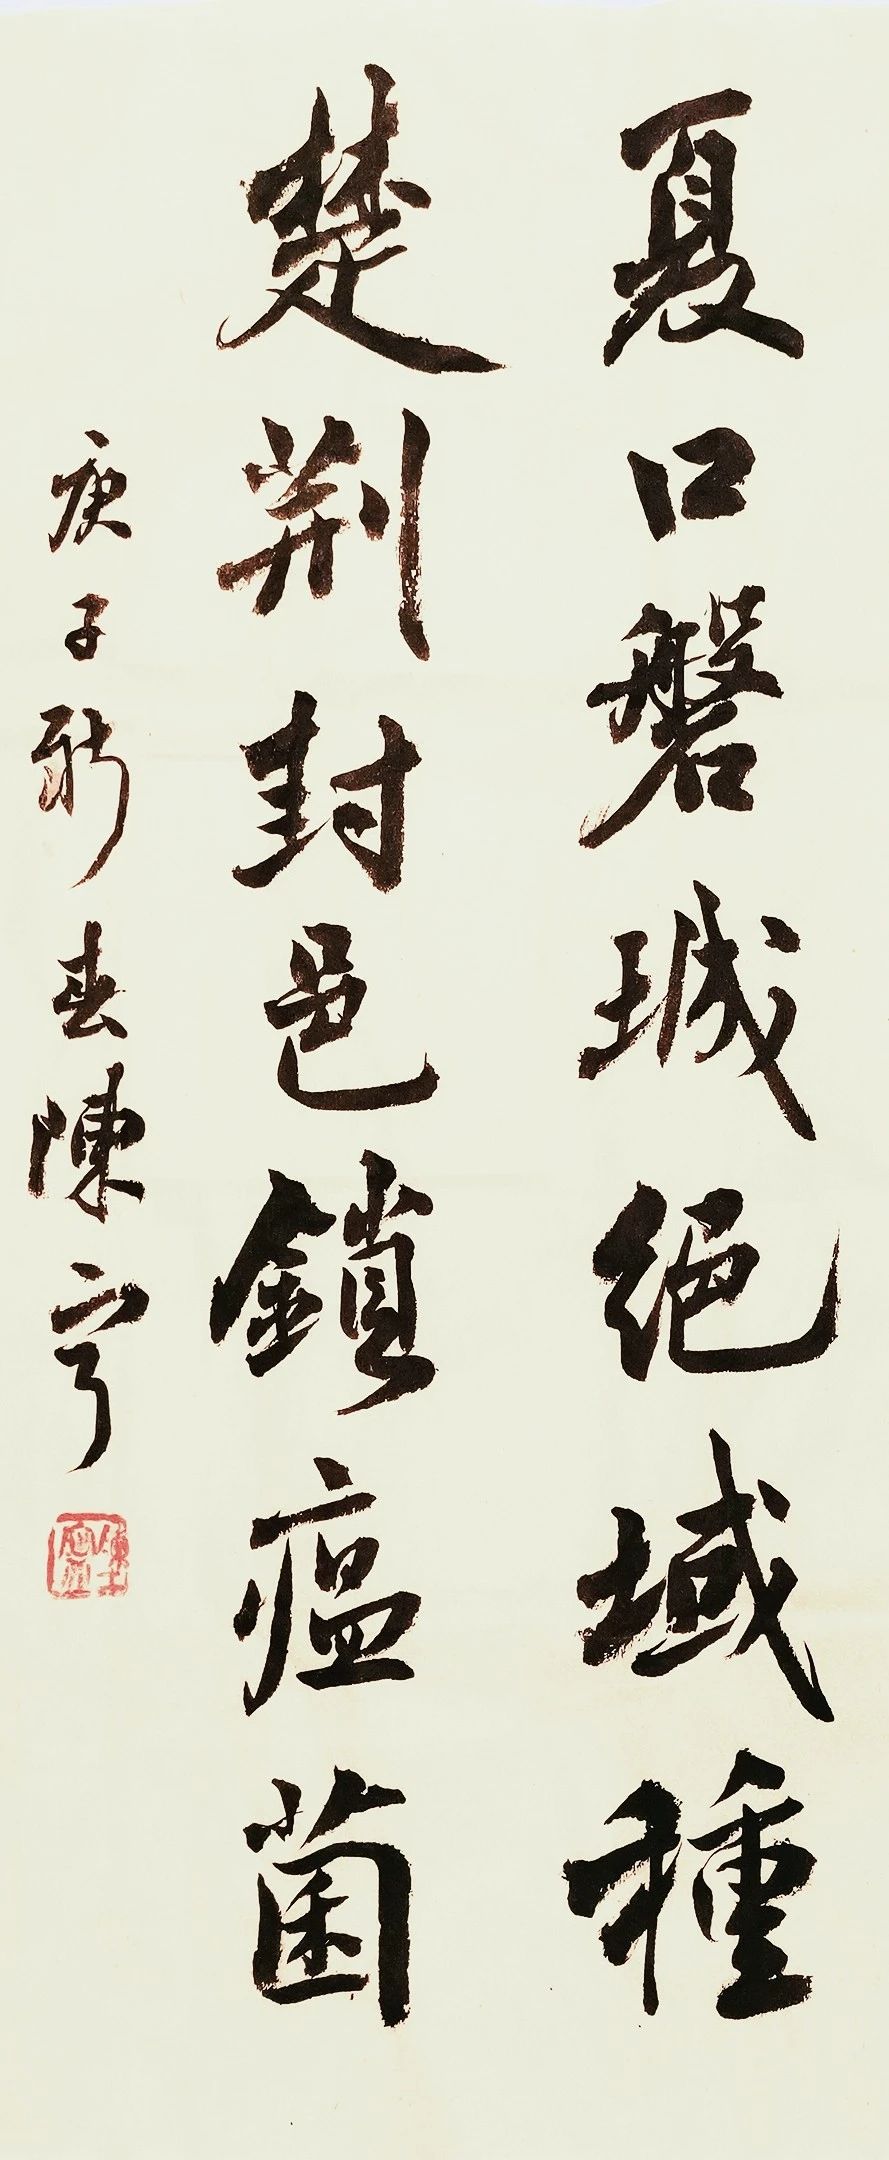 夏口磐城絕域種
楚荆封邑鎖瘟菌
庚子新春陳亨